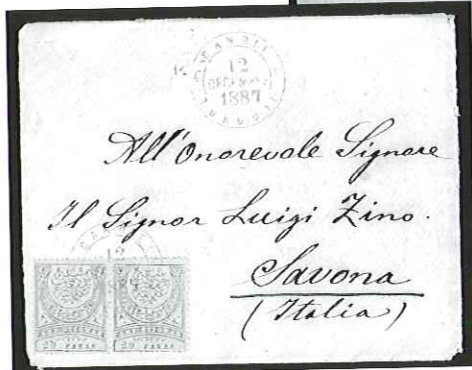 12
1887
All'Onorevole Signore
Il Signor Luigi Zino.
Savona
(Italia)
20 PARAS 20 PARAS